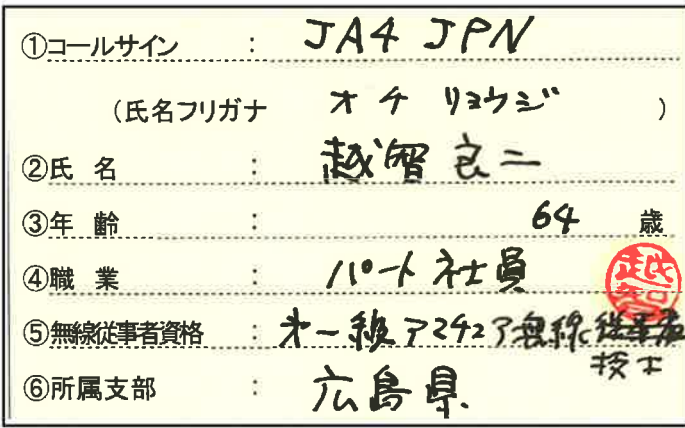 ①コールサイン : JA4 JPN
(氏名フリガナ オチ リョウジ )
②氏 名 : 越智良二
③年 齢 : 64 歳
④職 業 : パート社員
越智
⑤無線従事者資格 : 第一級アマチュア無線従事者
技士
⑥所属支部 : 広島県